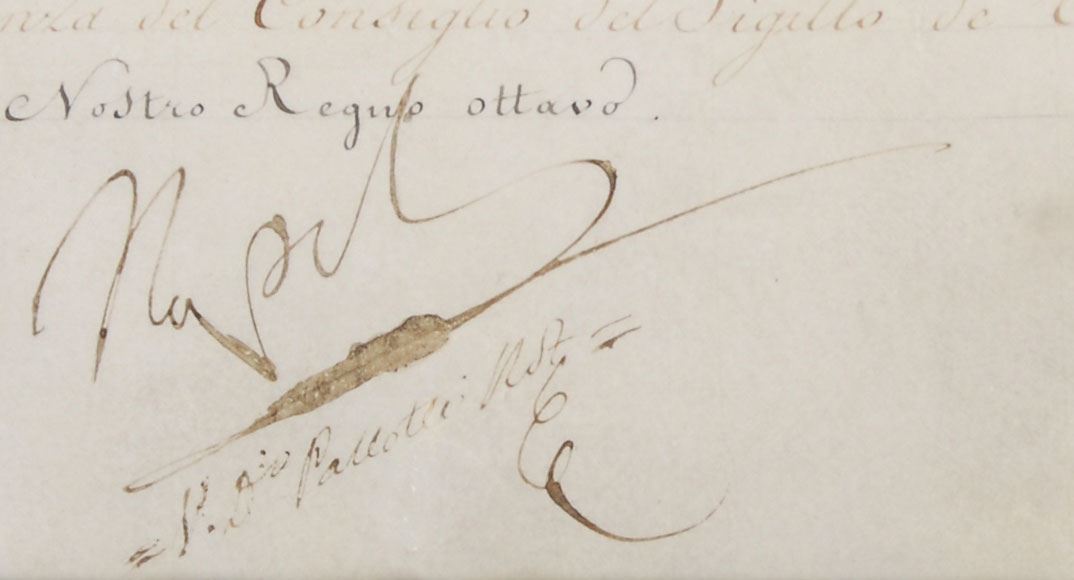 del Consiglio del Sigillo de
Nostro Regno ottavo.
Napol
Pallotti